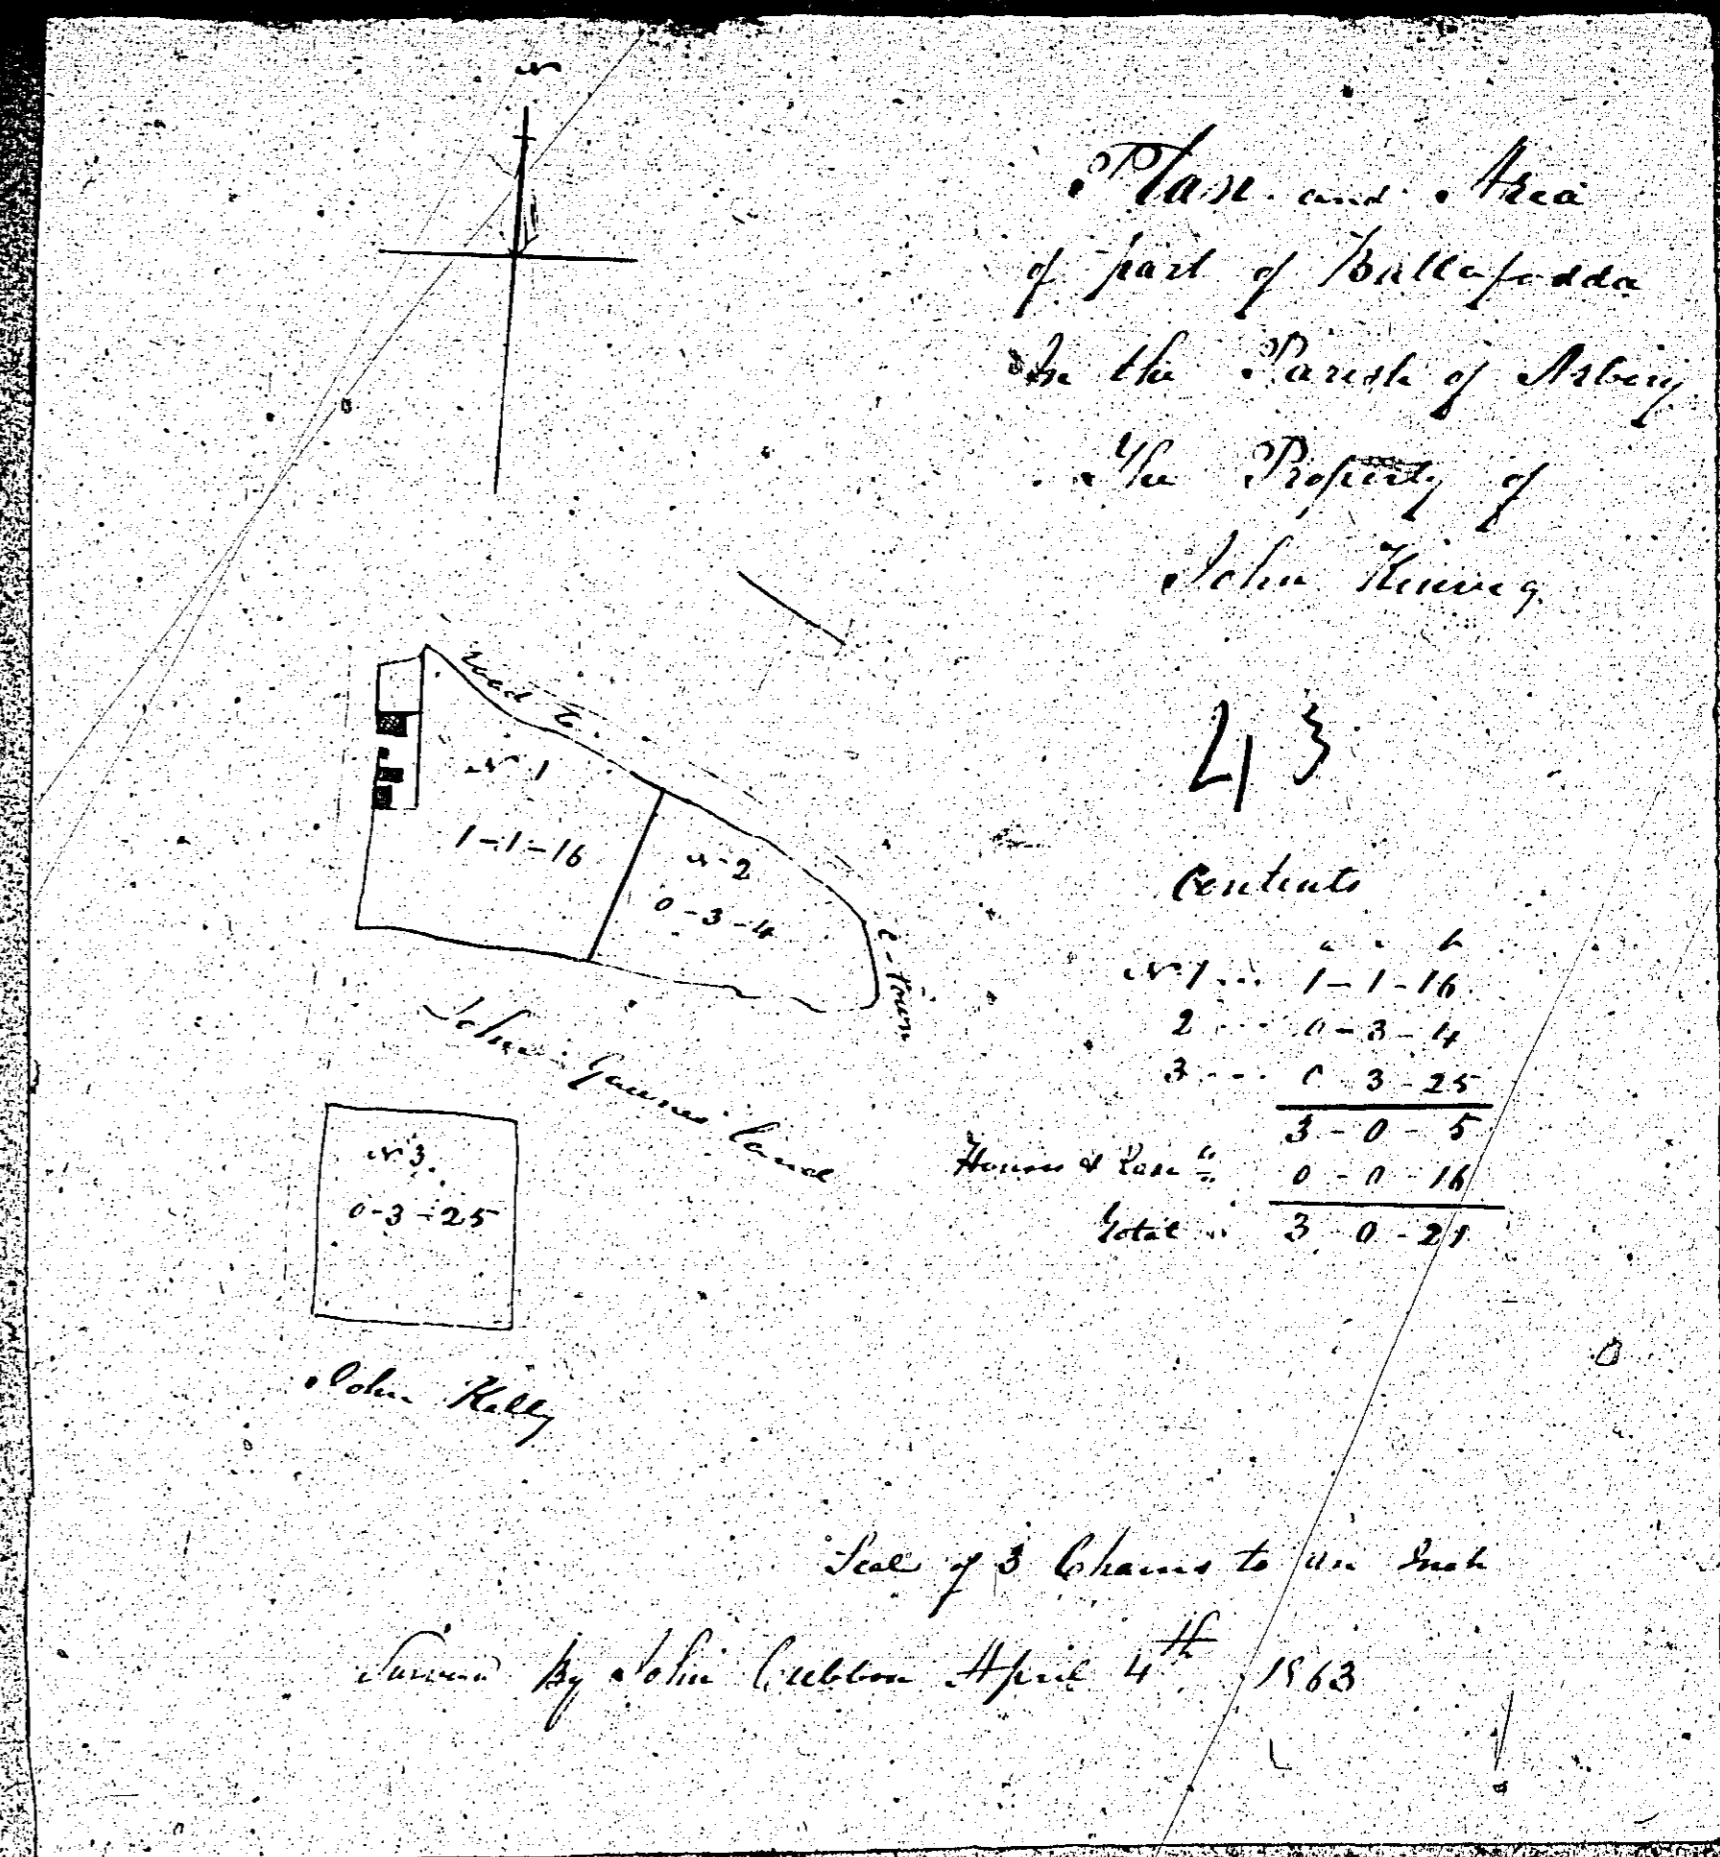 N
Plan and Area
of part of Ballafadda
In the Parish of Arbory
The Property of
John
43
Road to
C-town
N 1
1-1-16
N 2
0-3-4
John Gawnes land
N 3
0-3-25
John Kelly
Contents
a r p
N 1 ... 1-1-16
2 ... 0-3-4
3 ... 0 3-25
3-0-5
Houses & 0-0-16
Total .. 3 0-21
Scale of 3 Chains to an Inch
By John Cubbon April 4th 1863